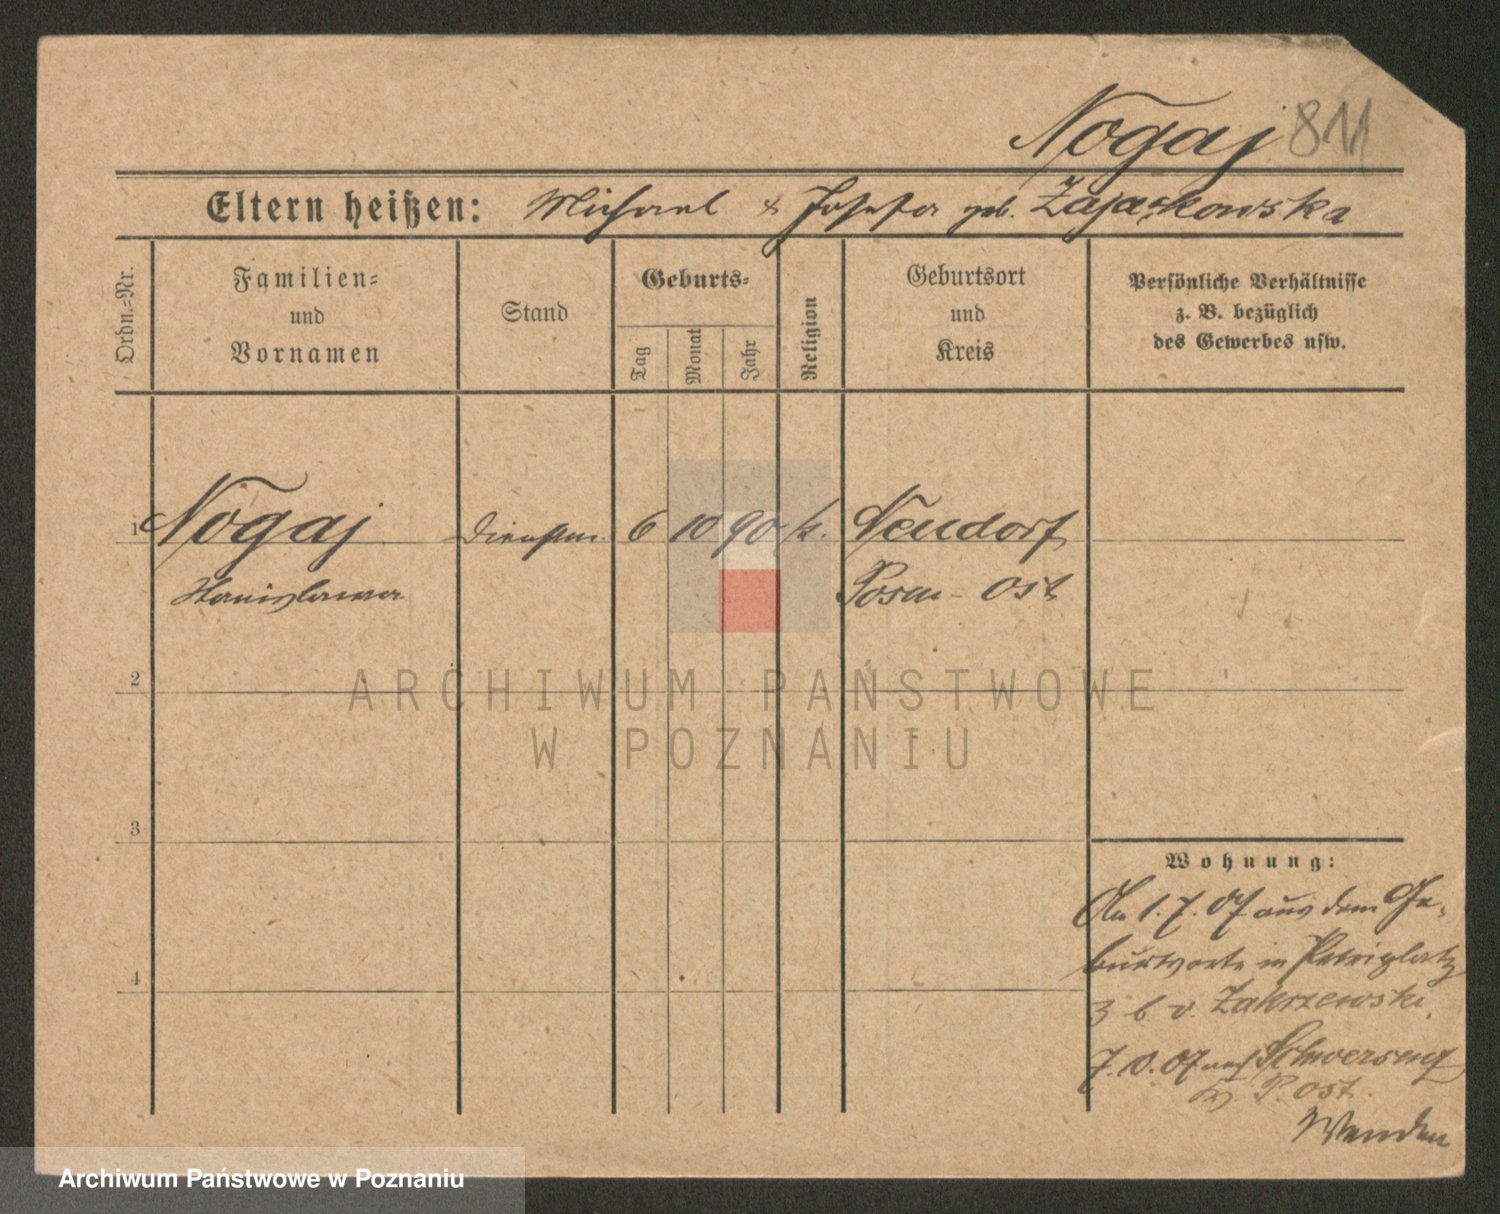 Nogaj 811
Eltern heißen: Michael & Josefa geb. Zajaczkowska
Ordn.-Nr.
Familien-
und
Vornamen
Stand
Geburts-
Tag
Monat
Jahr
Religion
Geburtsort
und
Kreis
Persönliche Verhältnisse
z. B. bezüglich
des Gewerbes usw.
1 Nogaj Dienstm. 6 10 90 k. Neudorf
Stanislawa Posen - Ost
2
3
4
Wohnung:
Am 1.7.07 aus dem Ge-
burtsorte in Petriplatz
3 b v. Zakrzewski.
nach Schwersenz
Kr. P. Ost.
Wenden
ARCHIWUM PAŃSTWOWE
W POZNANIU
Archiwum Państwowe w Poznaniu